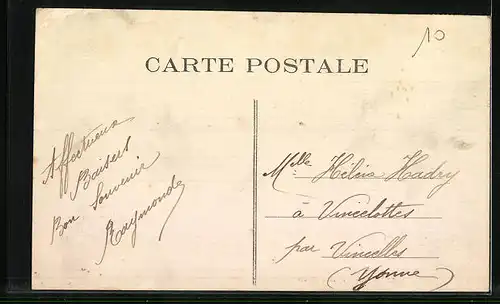 10
CARTE POSTALE
Affectueux
Baisers
Bon Souvenir
Raymonde
Mlle Hadry
à Vincelottes
par Vincelles
(Yonne)